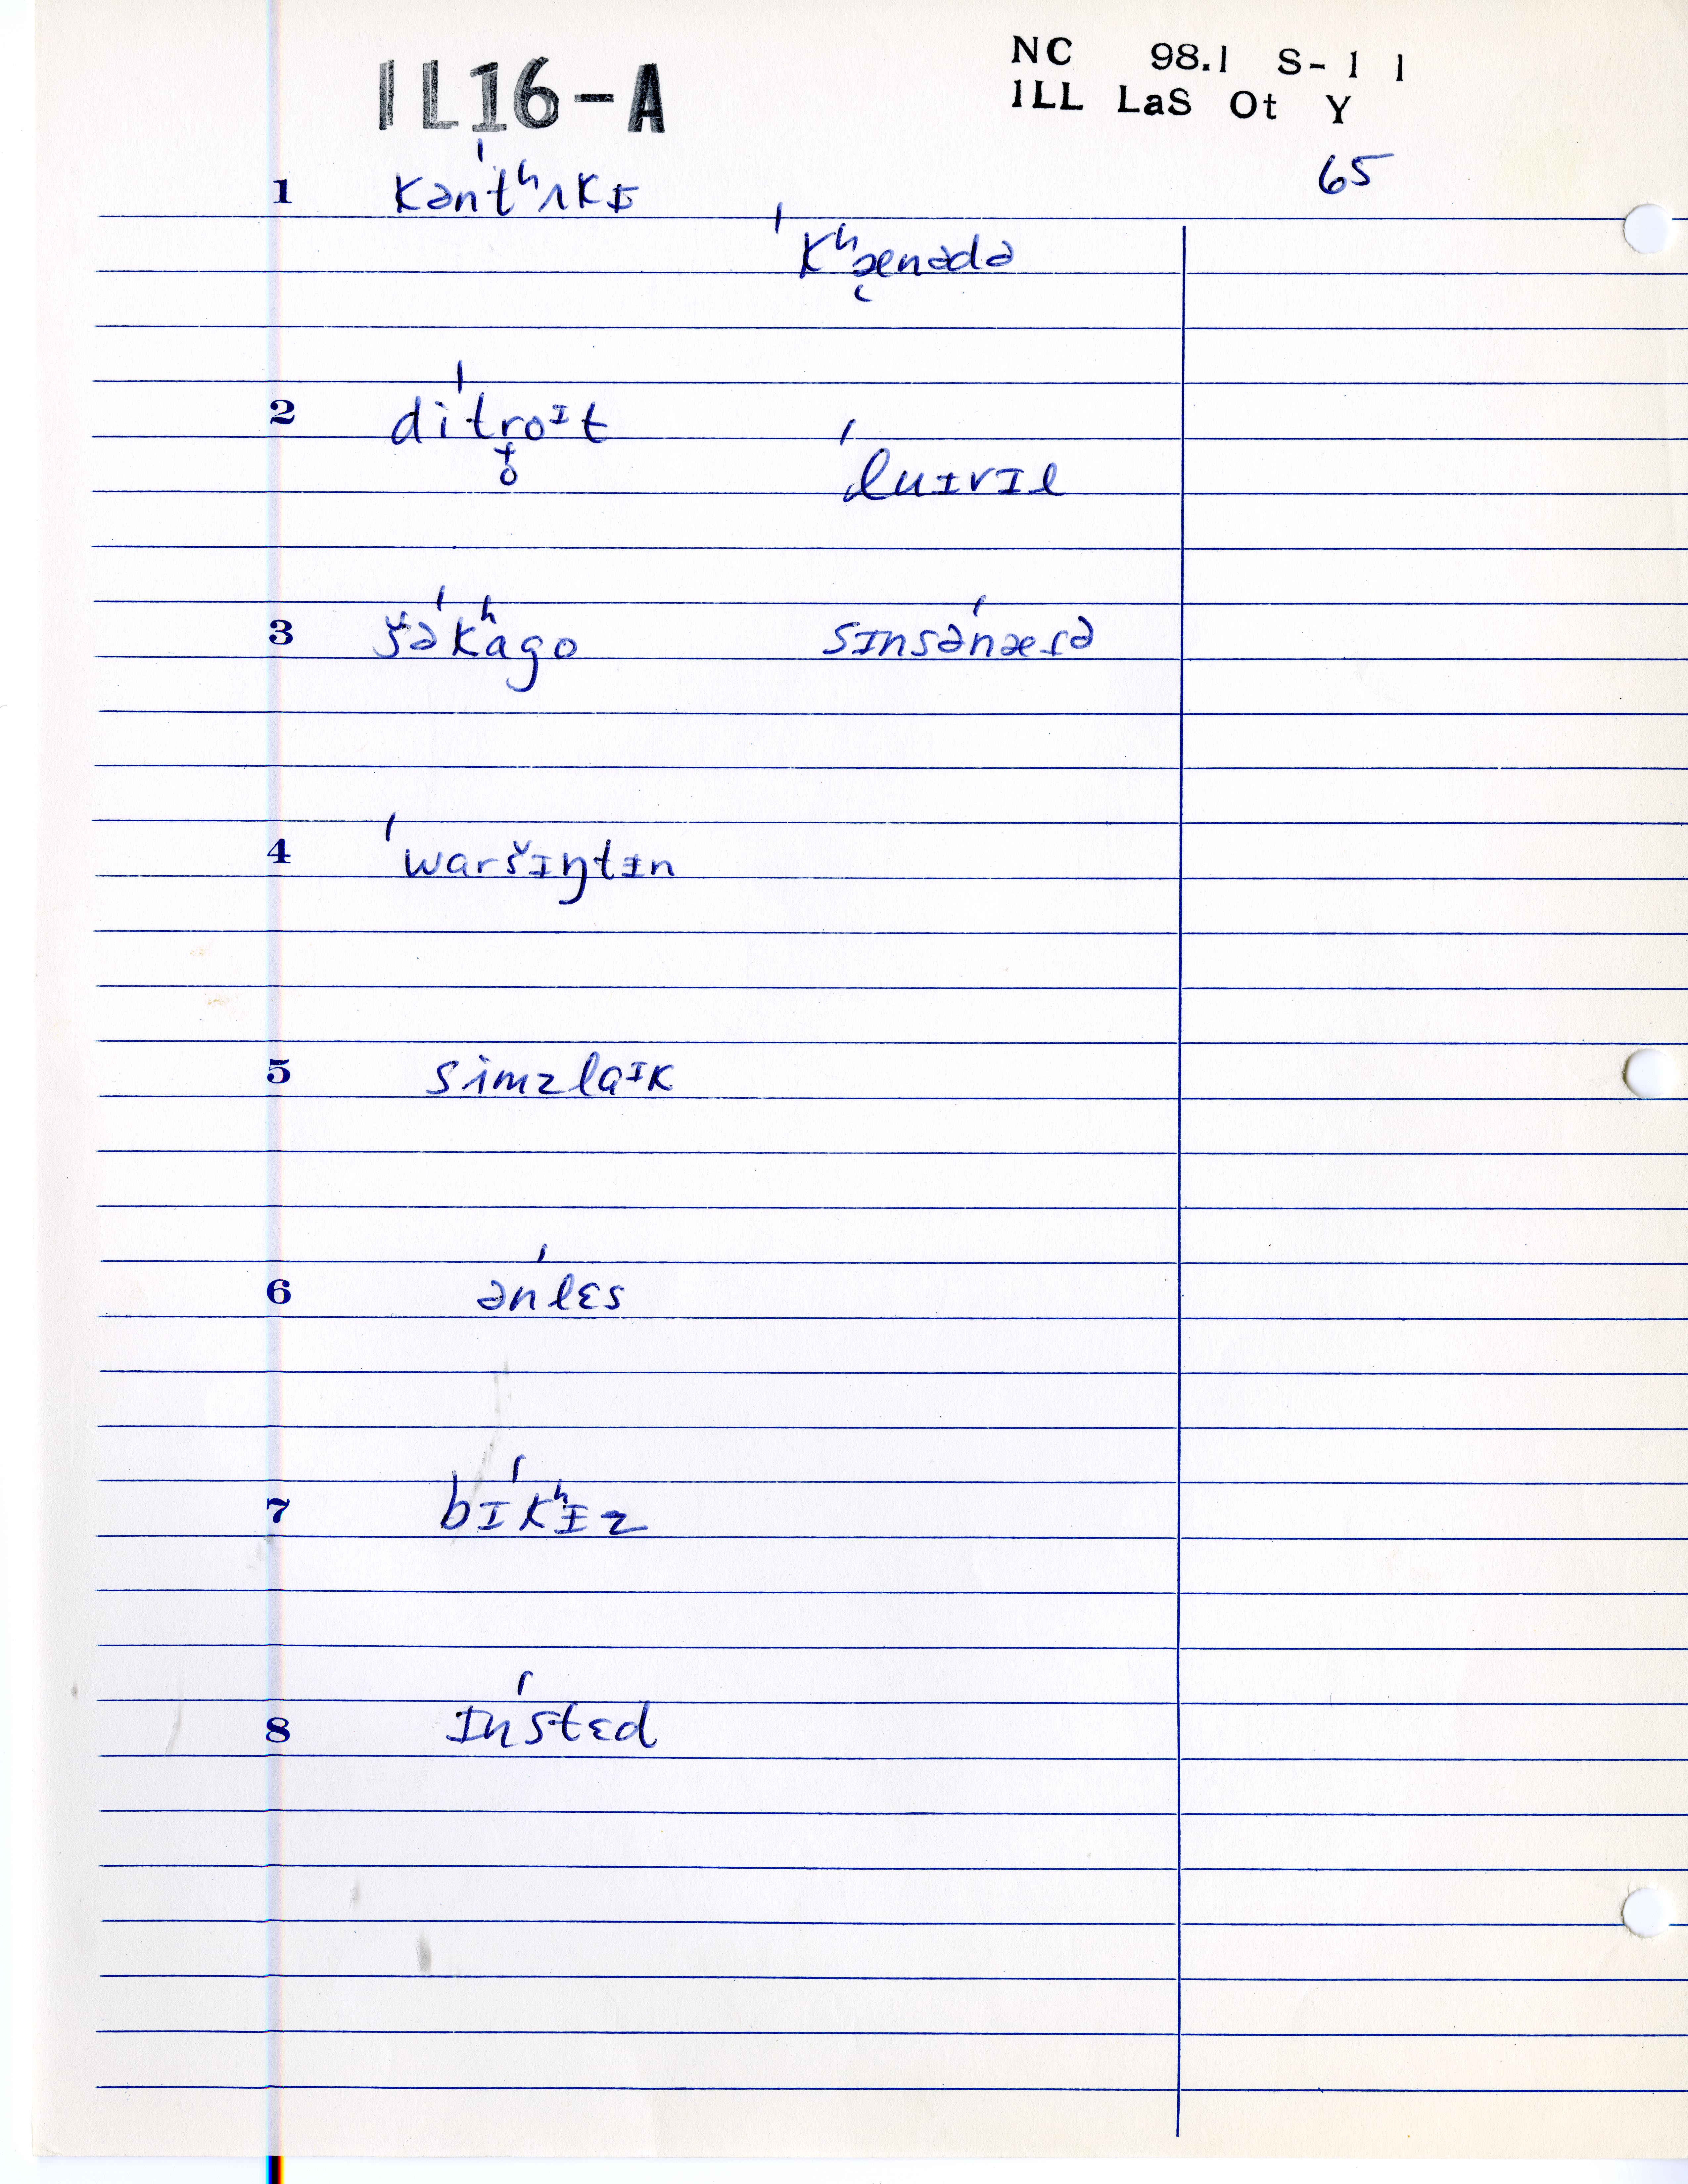 IL16-A
NC 98.1 S-1 1
ILL LaS Ot Y
65
1 kənˈtʰʌkɪ
ˈkʰæ̨nədə
2 diˈtroᶦt
ˈluɪvɪl
3 šəˈkʰago
sɪnsəˈnæɾə
4 ˈwaršɪŋtɪn
5 simzlaᶦk
6 ənˈlɛs
7 bɪˈkʰɪz
8 ɪnˈstɛd